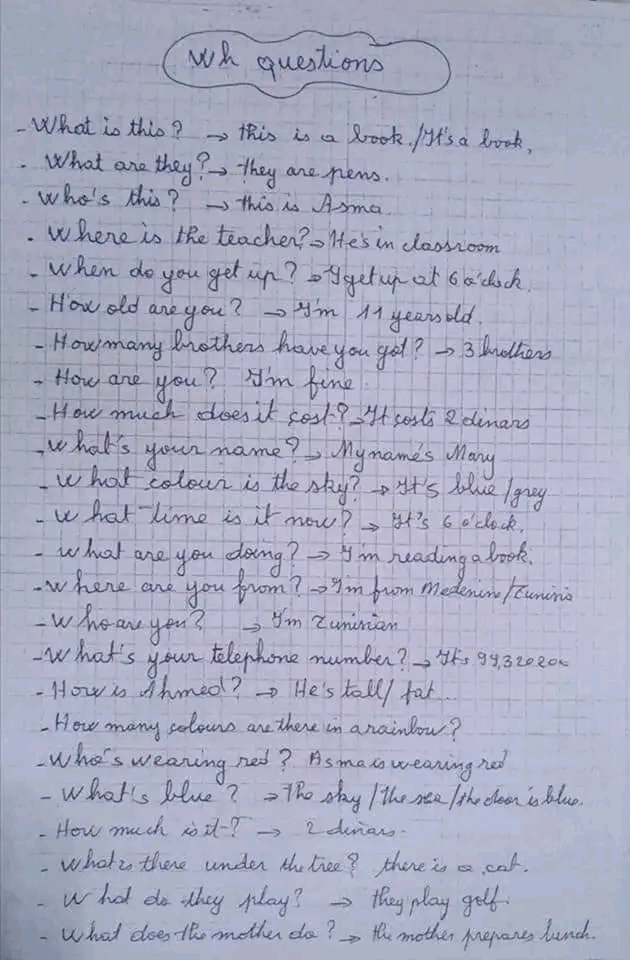 Wh questions
- What is this? → this is a book./It's a book.
- What are they? → they are pens.
- Who's this? → this is Asma
- Where is the teacher? → He's in classroom
- When do you get up? → I get up at 6 o'clock.
- How old are you? → I'm 11 years old.
- How many brothers have you got? → 3 brothers
- How are you? I'm fine.
- How much does it cost? → It costs 2 dinars
- What's your name? → My name's Mary
- What colour is the sky? → It's blue/grey
- What time is it now? → It's 6 o'clock.
- What are you doing? → I'm reading a book.
- Where are you from? → I'm from Medenine/
- Who are you? → I'm Tunisian
- What's your telephone number? → It's
- How is Ahmed? → He's tall/ fat...
- How many colours are there in a rainbow?
- Who's wearing red? Asma is wearing red
- What's blue? → the sky/the sea/the door is blue.
- How much is it? → 2 dinars.
- What is there under the tree? there is a cat.
- What do they play? → they play golf.
- What does the mother do? → the mother prepares lunch.